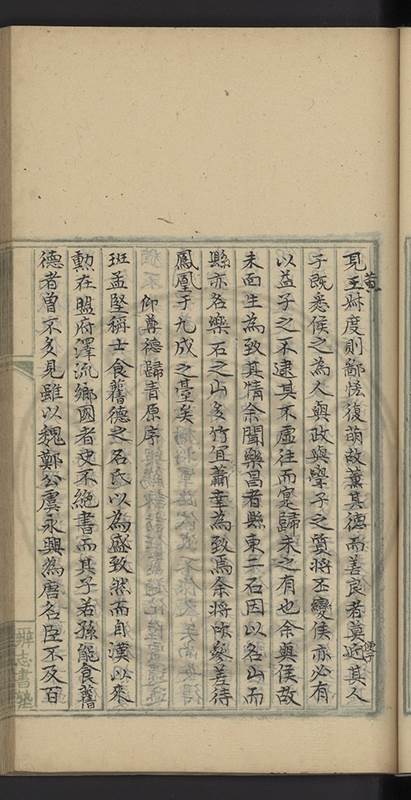 見王叔度則鄙悋復萌故薰其德而善良者莫近其人
子既悉侯之為人與政與學子之質將丕變侯亦必有
以益子之不逮其不虛往而寔歸未之有也余與侯故
未面生為致其情余聞樂昌者縣東二石因以名山而
縣亦名樂石之山多竹宜蕭幸為致焉余將吹參差待
鳳凰于九成之臺矣
仰尊德歸青原序
班孟堅稱士食舊德之名氏以為盛致然而自漢以來
勳在盟府澤流鄉國者史不絕書而其子若孫能食舊
德者曾不多見雖以魏鄭公虞永興為唐名臣不及百
黃